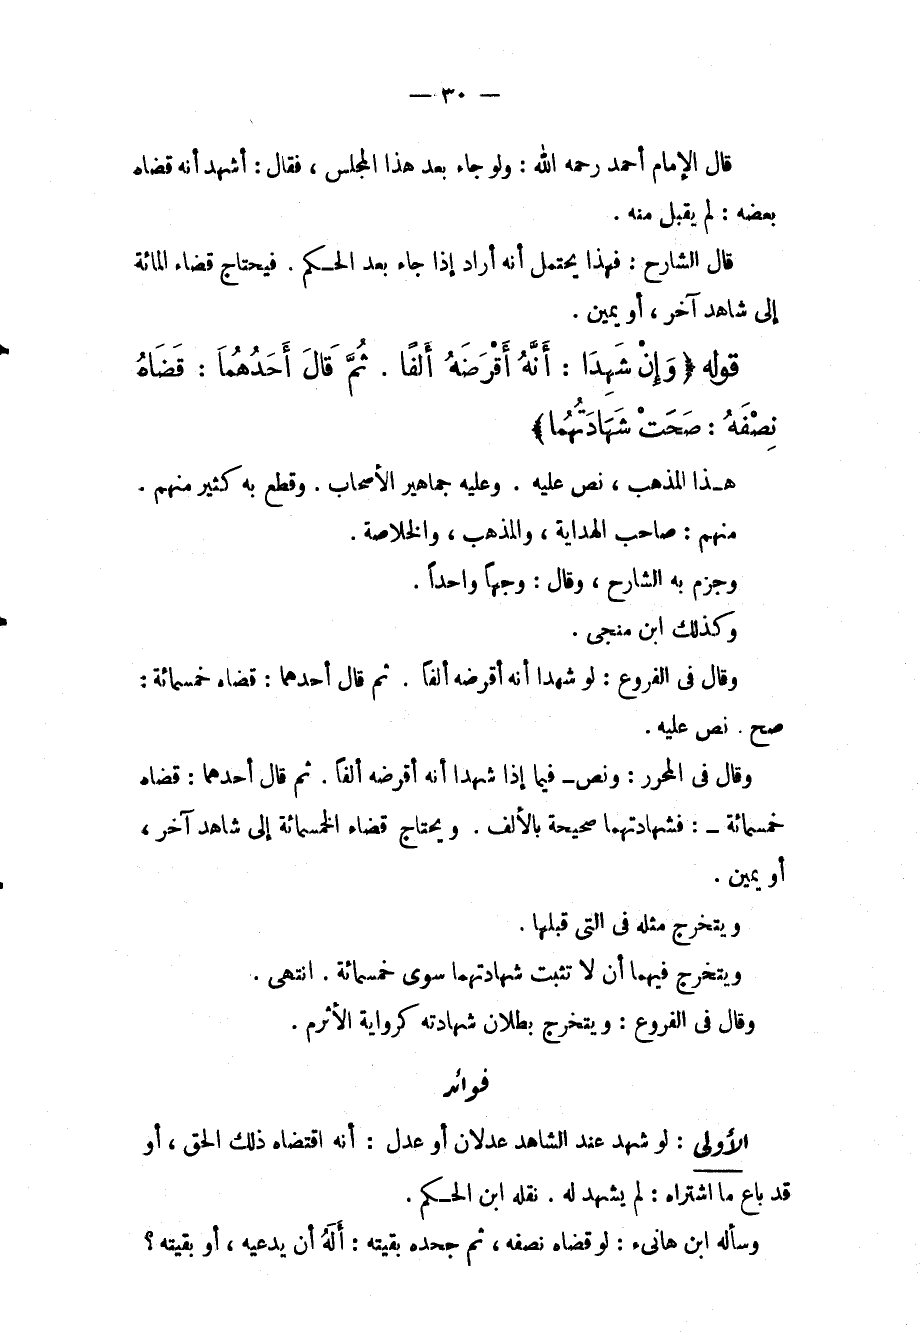 — ٣٠ —
قال الإمام أحمد رحمه الله : ولو جاء بعد هذا المجلس ، فقال : أشهد أنه قضاه
بعضه : لم يقبل منه .
قال الشارح : فهذا يحتمل أنه أراد إذا جاء بعد الحـكم . فيحتاج قضاء المائة
إلى شاهد آخر ، أو يمين .
قوله ﴿ وَإِنْ شَهِدَا : أَنَّهُ أَقْرَضَهُ أَلفًا . ثُمَّ قَالَ أَحَدُهُمَا : قَضَاهُ
نِصْفَهُ : صَحَتْ شَهَادَتُهُما ﴾
هـذا المذهب ، نص عليه . وعليه جماهير الأصحاب . وقطع به كثير منهم .
منهم : صاحب الهداية ، والمذهب ، والخلاصة .
وجزم به الشارح ، وقال : وجهاً واحداً .
وكذلك ابن منجى .
وقال فى الفروع : لو شهدا أنه أقرضه ألفاً . ثم قال أحدهما : قضاه خمسمائة :
صح . نص عليه .
وقال فى المحرر : ونص ــ فيما إذا شهدا أنه أقرضه ألفاً . ثم قال أحدهما : قضاه
خمسمائة ــ : فشهادتهما صحيحة بالألف . ويحتاج قضاء الخمسمائة إلى شاهد آخر ،
أو يمين .
ويتخرج مثله فى التى قبلها .
ويتخرج فيهما أن لا تثبت شهادتهما سوى خمسمائة . انتهى .
وقال فى الفروع : ويتخرج بطلان شهادته كرواية الأثرم .
فوائد
الأولى : لو شهد عند الشاهد عدلان أو عدل : أنه اقتضاه ذلك الحق ، أو
قد باع ما اشتراه : لم يشهد له . نقله ابن الحـكم .
وسأله ابن هانىء : لو قضاه نصفه ، ثم جحده بقيته : أَلَهُ أن يدعيه ، أو بقيته ؟